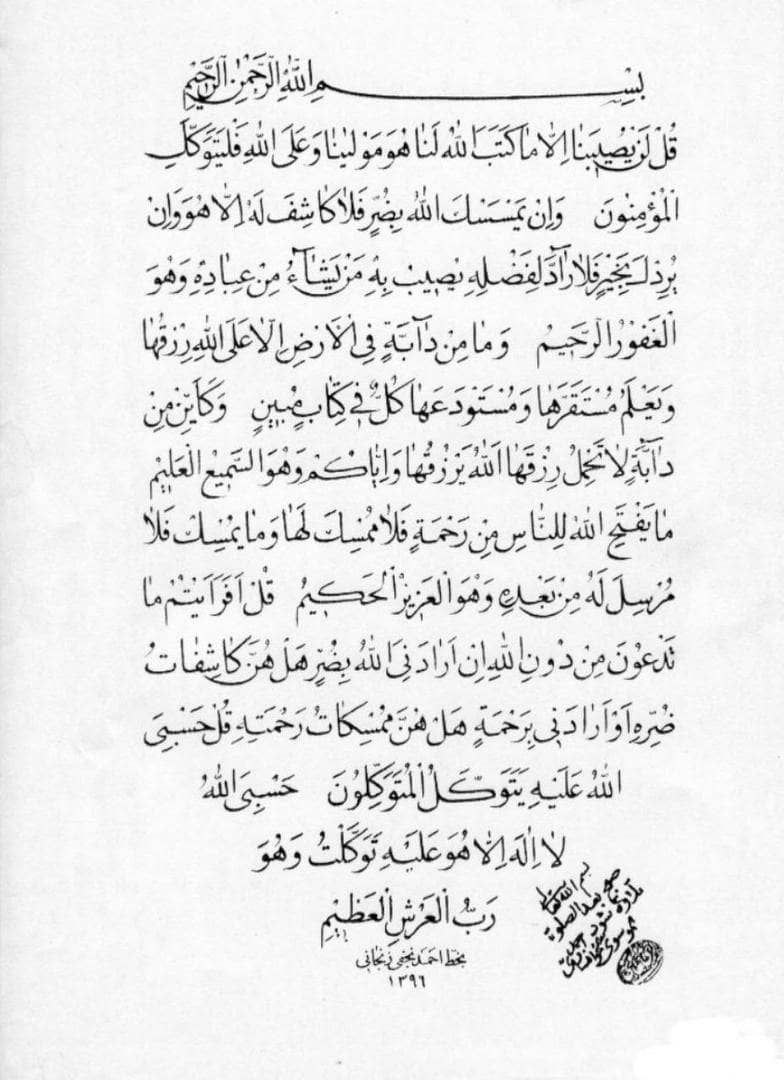 بِسْمِ اللّٰهِ الرَّحْمٰنِ الرَّحِيْمِ
قُلْ لَنْ يُصِيبَنٰا اِلّٰا مٰا كَتَبَ اللّٰهُ لَنٰا هُوَ مَوْلٰينٰا وَعَلَى اللّٰهِ فَلْيَتَوَكَّلِ
الْمُؤْمِنُونَ وَاِنْ يَمْسَسْكَ اللّٰهُ بِضُرٍّ فَلٰا كٰاشِفَ لَهُ اِلّٰا هُوَ وَاِنْ
يُرِدْكَ بِخَيْرٍ فَلٰا رٰآدَّ لِفَضْلِهِ يُصِيبُ بِهِ مَنْ يَشٰآءُ مِنْ عِبٰادِهِ وَهُوَ
الْغَفُورُ الرَّحِيمُ وَمٰا مِنْ دٰآبَّةٍ فِى الْاَرْضِ اِلّٰا عَلَى اللّٰهِ رِزْقُهٰا
وَيَعْلَمُ مُسْتَقَرَّهٰا وَمُسْتَوْدَعَهٰا كُلٌّ فِى كِتٰابٍ مُبِينٍ وَكَاَيِّنْ مِنْ
دٰآبَّةٍ لٰا تَحْمِلُ رِزْقَهَا اَللّٰهُ يَرْزُقُهٰا وَاِيّٰاكُمْ وَهُوَ السَّمِيعُ الْعَلِيمُ
مٰا يَفْتَحِ اللّٰهُ لِلنّٰاسِ مِنْ رَحْمَةٍ فَلٰا مُمْسِكَ لَهٰا وَمٰا يُمْسِكْ فَلٰا
مُرْسِلَ لَهُ مِنْ بَعْدِهِ وَهُوَ الْعَزِيزُ الْحَكِيمُ قُلْ اَفَرَاَيْتُمْ مٰا
تَدْعُونَ مِنْ دُونِ اللّٰهِ اِنْ اَرٰادَنِىَ اللّٰهُ بِضُرٍّ هَلْ هُنَّ كٰاشِفٰاتُ
ضُرِّهِ اَوْ اَرٰادَنِى بِرَحْمَةٍ هَلْ هُنَّ مُمْسِكٰاتُ رَحْمَتِهِ قُلْ حَسْبِىَ
اللّٰهُ عَلَيْهِ يَتَوَكَّلُ الْمُتَوَكِّلُونَ حَسْبِىَ اللّٰهُ
لٰا اِلٰهَ اِلّٰا هُوَ عَلَيْهِ تَوَكَّلْتُ وَهُوَ
رَبُّ الْعَرْشِ الْعَظِيْمِ
بخط احمد نجفى زنجانى
١٣٩٦
بسم الله تعالى
بعد الصلوة